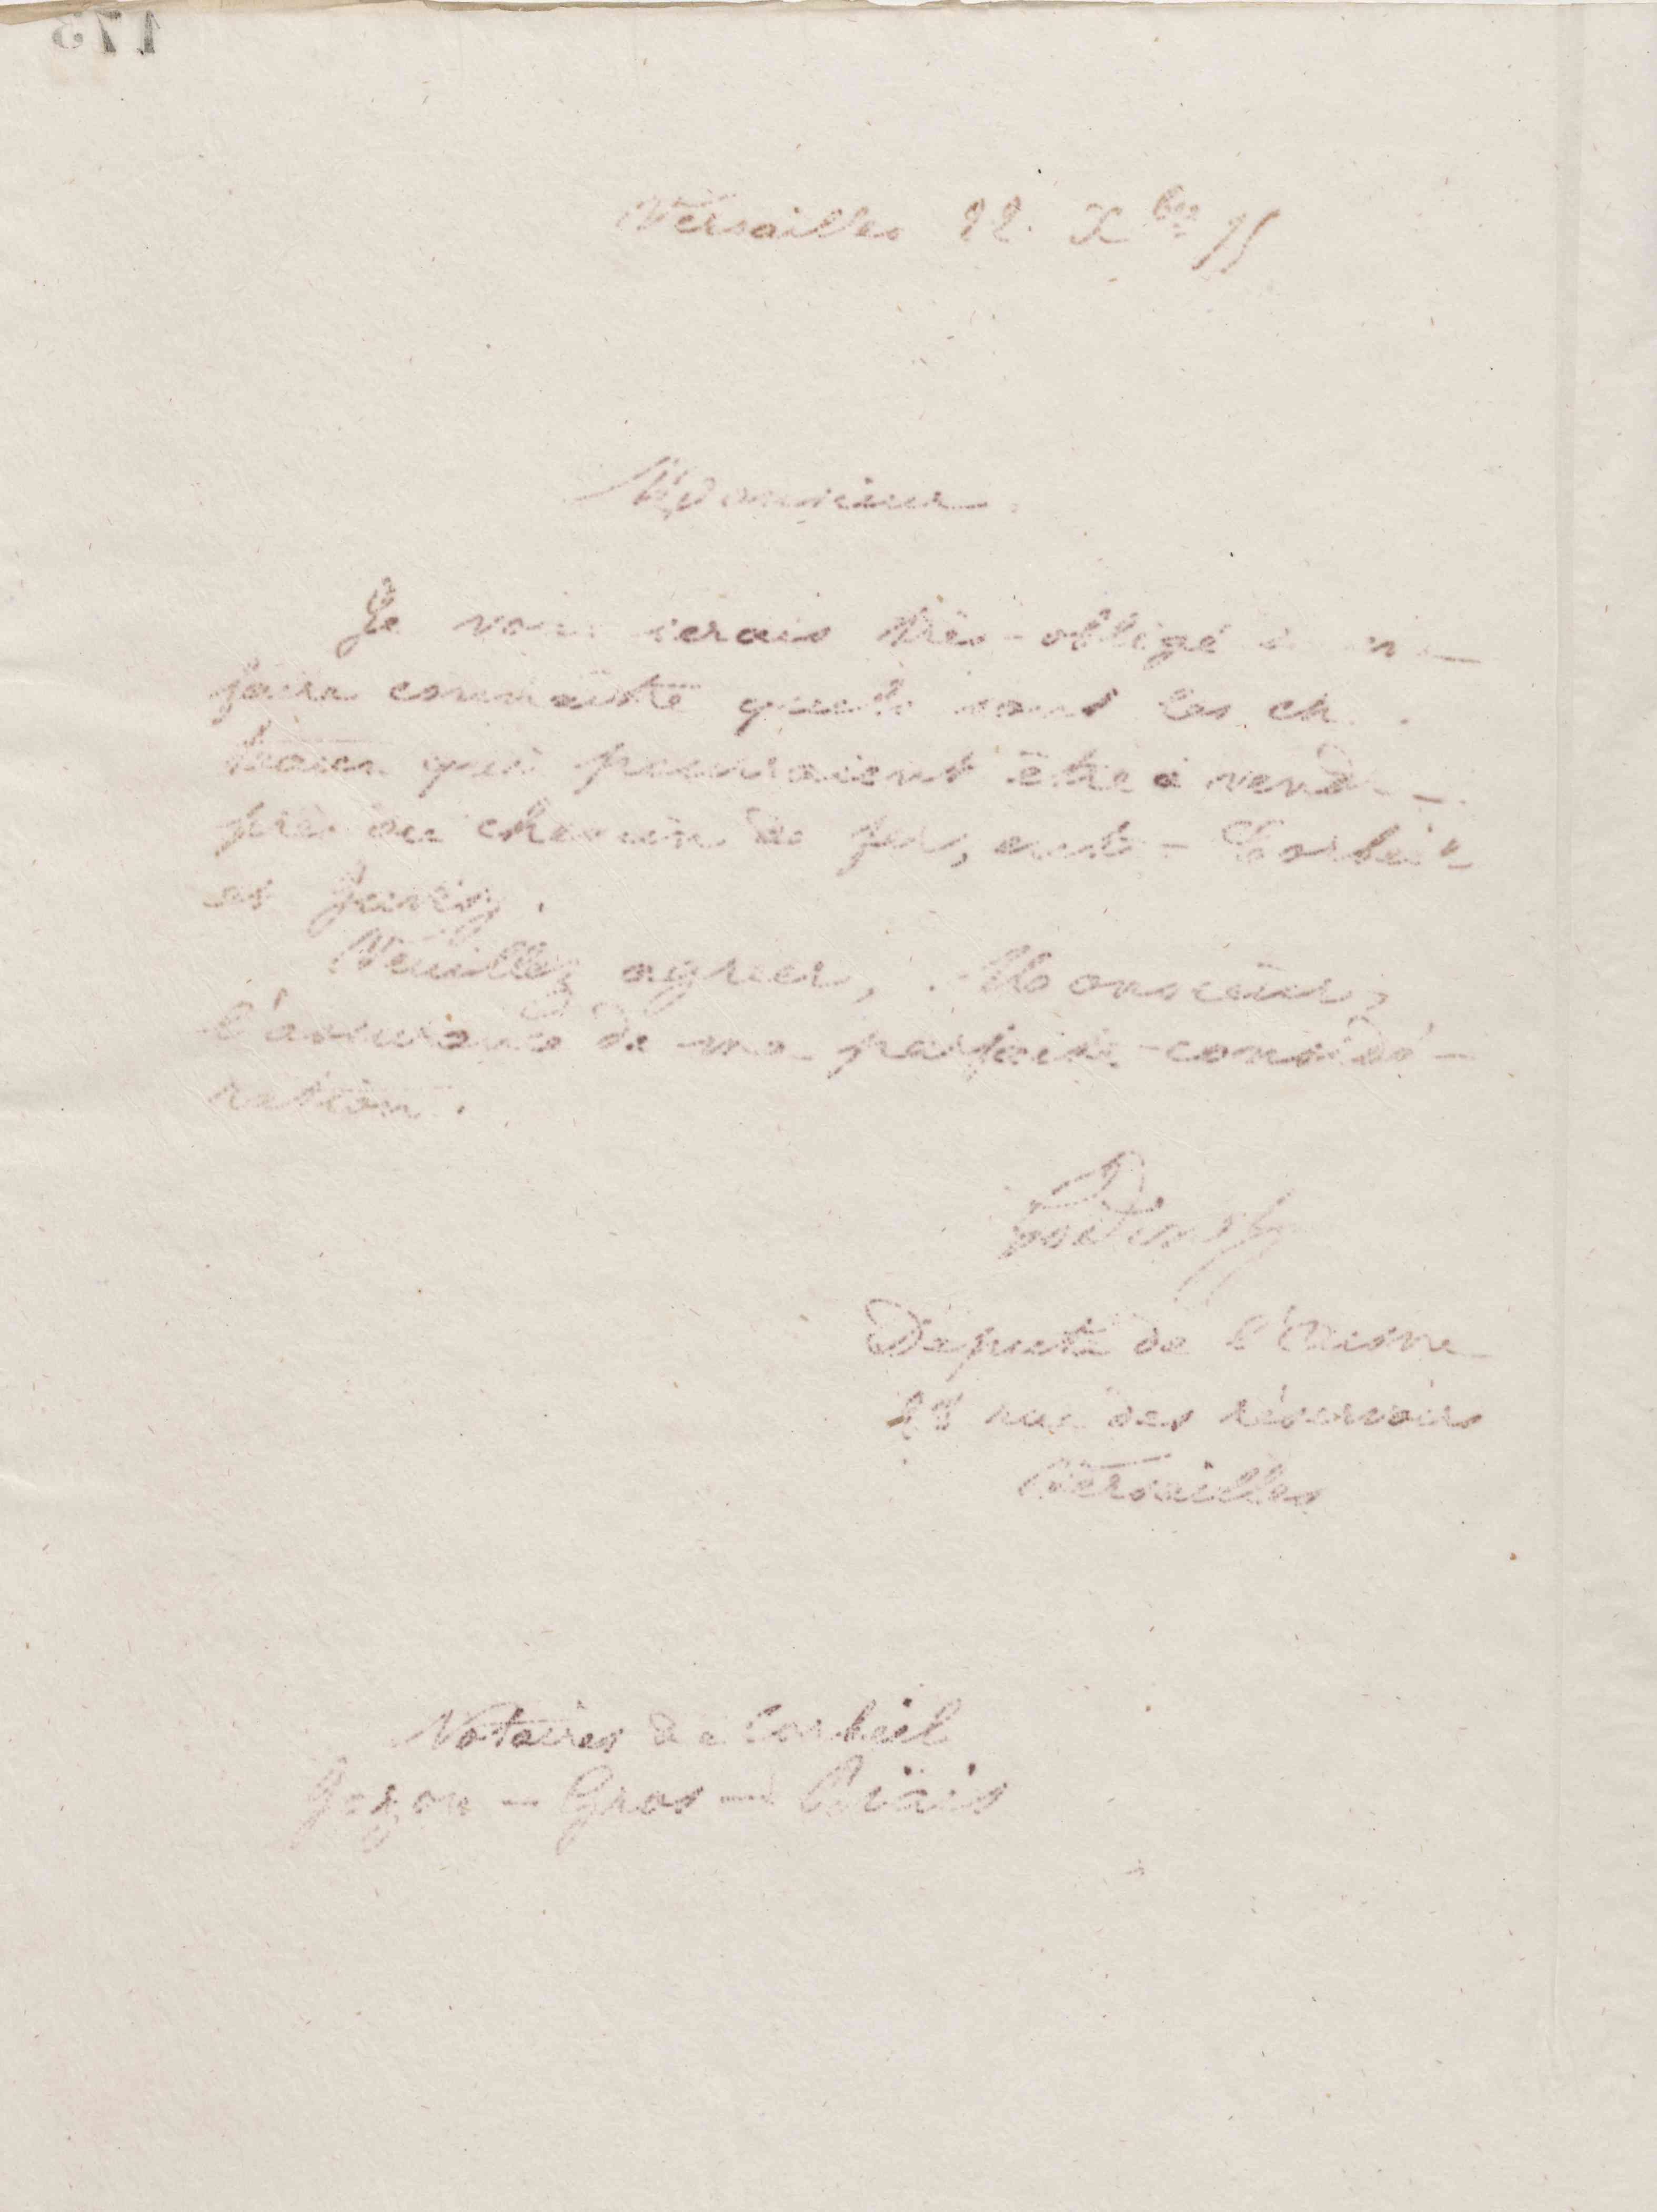 173
Versailles 22 Xbre 75
Monsieur
Je vous serais très-obligé
faire connaître quels sont les
qui pourraient être à vendre
près du chemin de fer, entre Corbeil
et Juvisy.
Veuillez agréer, Monsieur,
l'assurance de ma parfaite considé-
ration.
Godin
Député de l'Aisne
rue des réservoirs
Versailles
Notaires de Corbeil
Jozon – Gros –